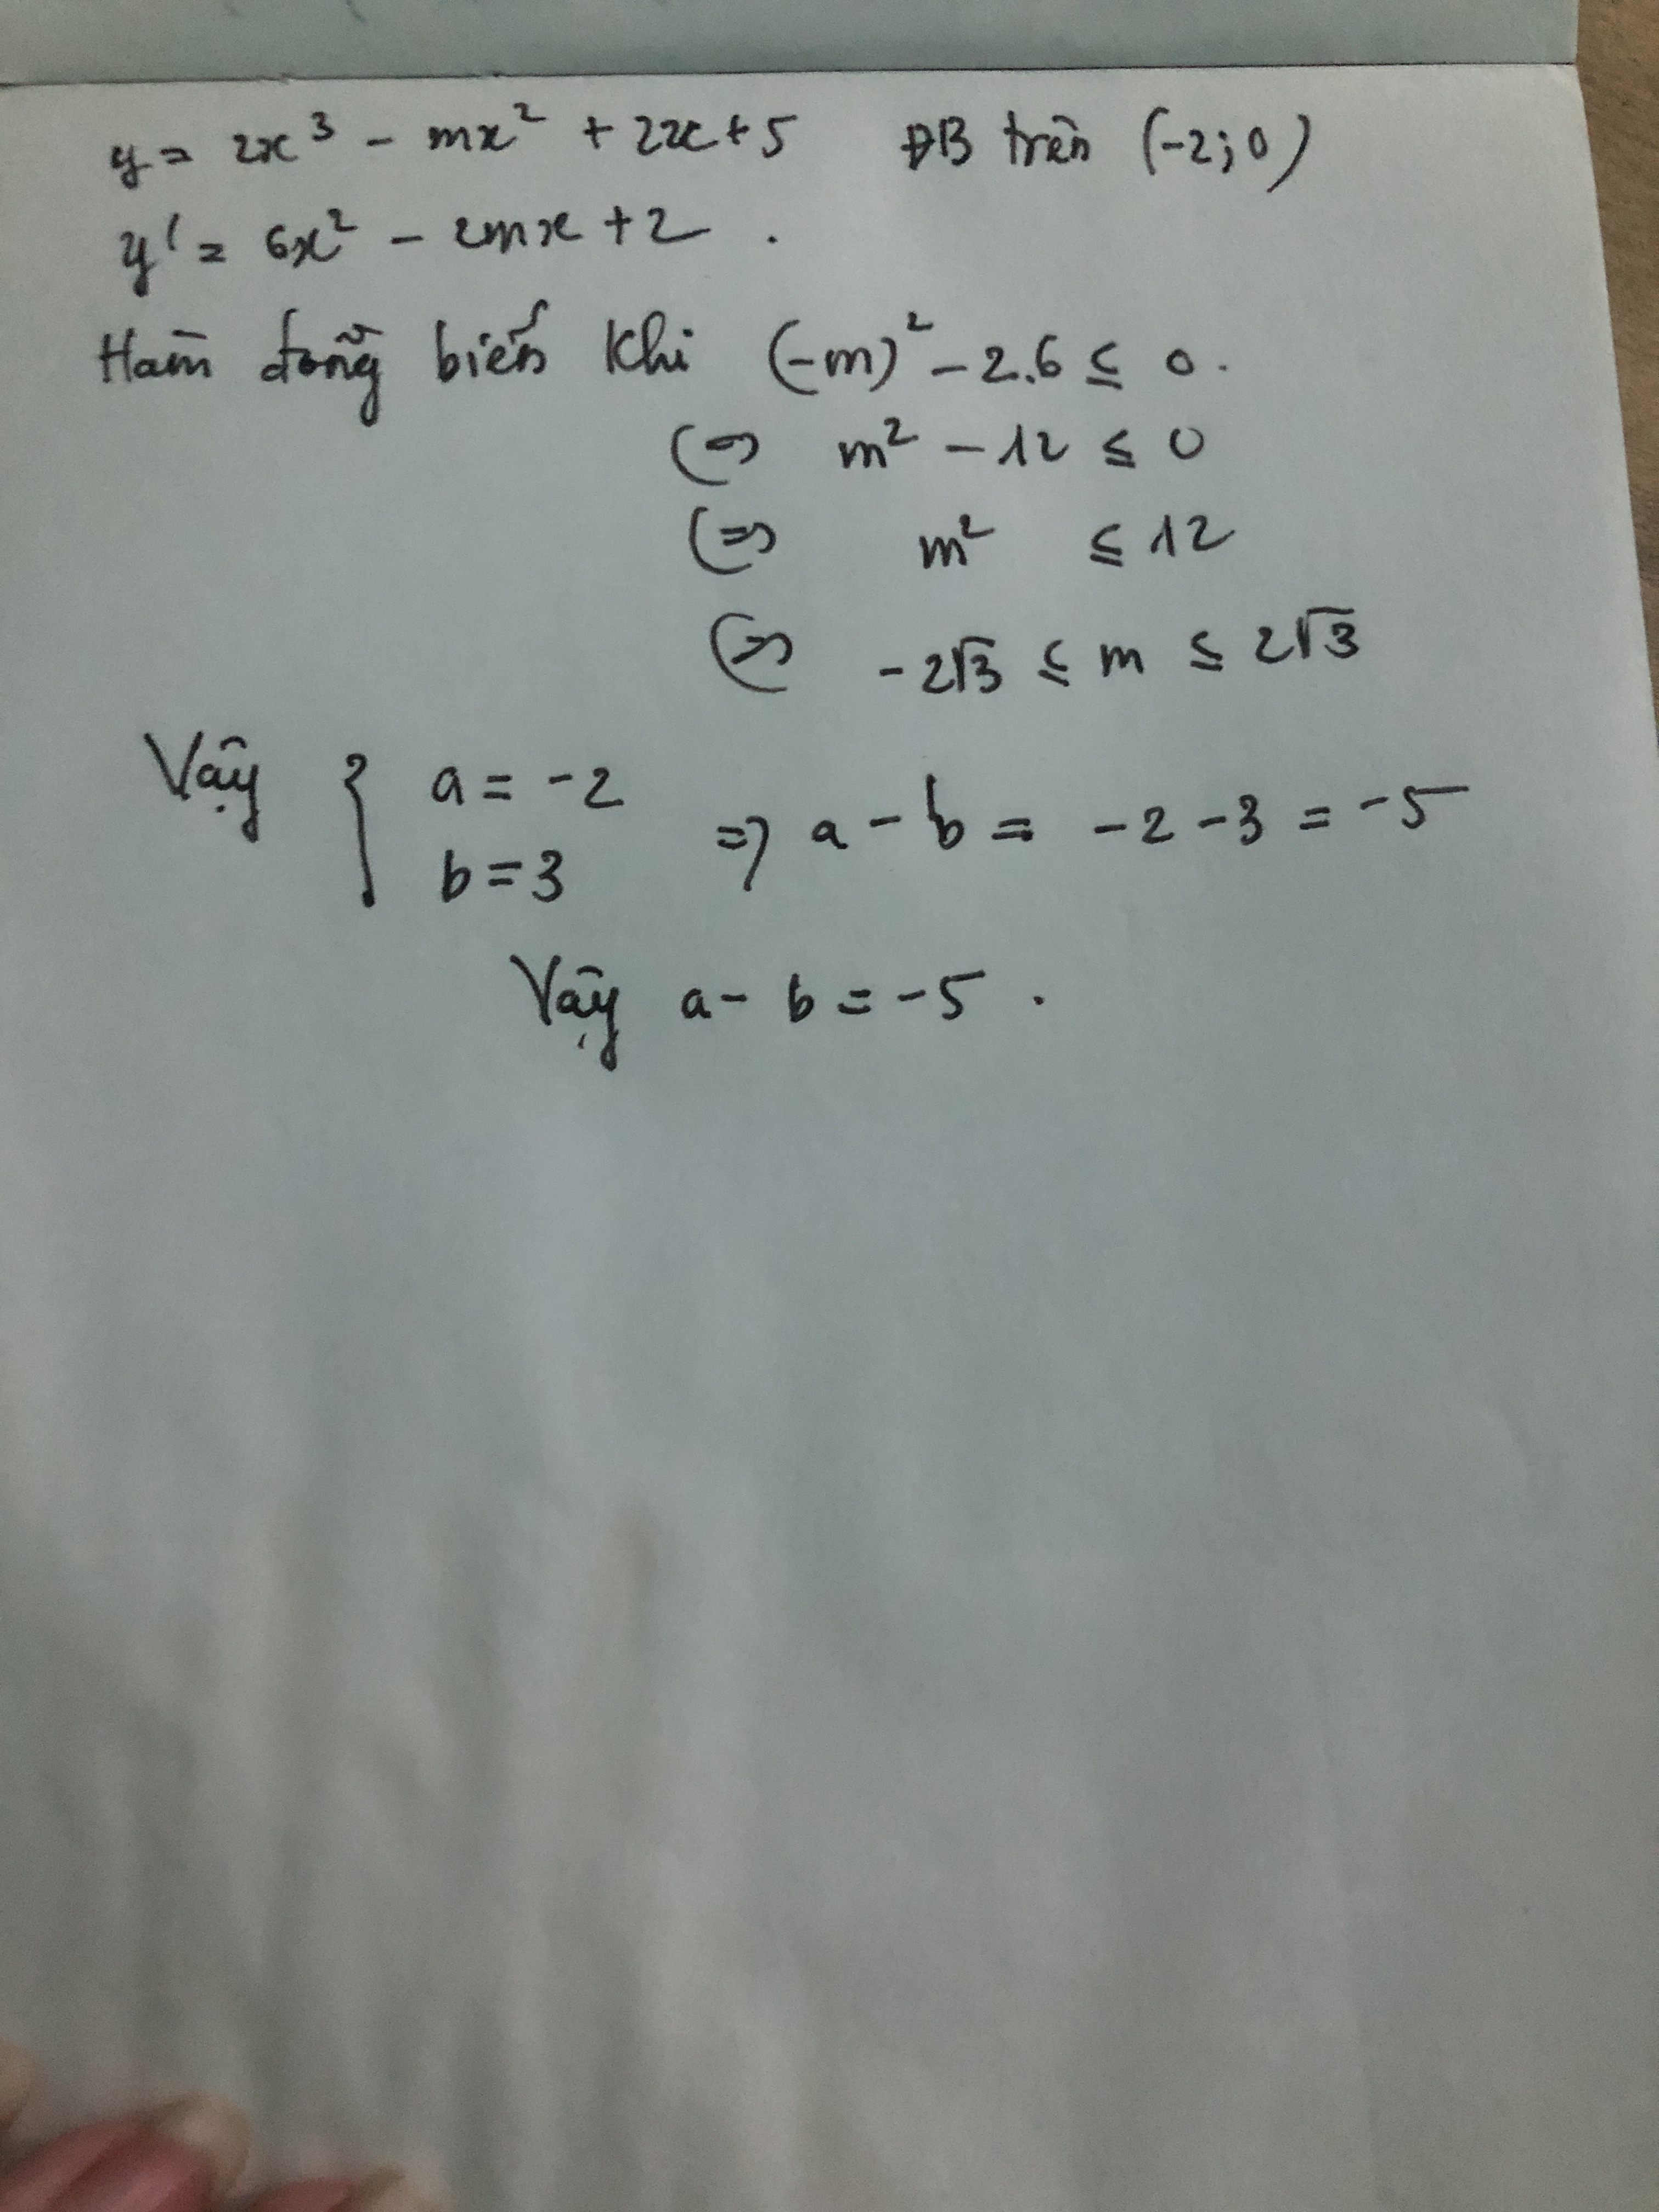 y = 2x³ - mx² + 2x + 5 ĐB trên (-2; 0)
y' = 6x² - 2mx + 2.
Hàm đồng biến khi (-m)² - 2.6 ≤ 0.
⇔ m² - 12 ≤ 0
⇔ m² ≤ 12
⇔ -2√3 ≤ m ≤ 2√3
Vậy { a = -2
b = 3 ⇒ a - b = -2 - 3 = -5
Vậy a - b = -5.